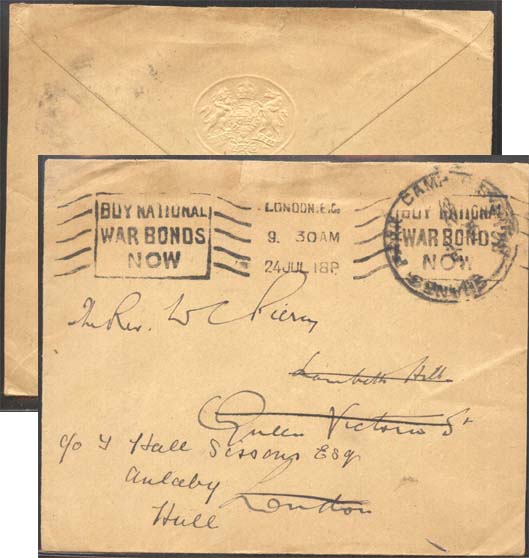 BUY NATIONAL
WAR BONDS
NOW
LONDON. E.C
9. 30AM
24 JUL 18P
BUY NATIONAL
WAR BONDS
NOW
PARK CAMP
The Rev. W C Piercy
Lambeth Hill
Queen Victoria St
London
c/o T Hall Sissons Esq
Anlaby
Hull